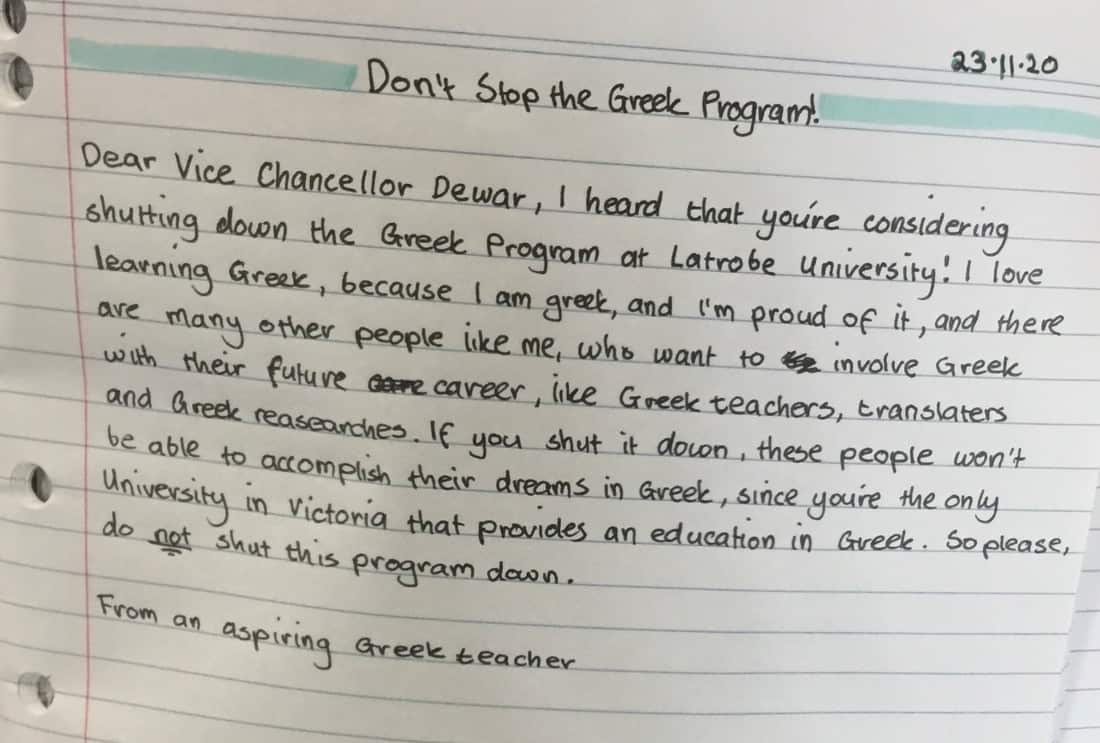 23·11·20
Don't Stop the Greek Program!
Dear Vice Chancellor Dewar, I heard that you're considering
shutting down the Greek Program at Latrobe University! I love
learning Greek, because I am greek, and I'm proud of it, and there
are many other people like me, who want to involve Greek
with their future career, like Greek teachers, translaters
and Greek reasearches. If you shut it down, these people won't
be able to accomplish their dreams in Greek, since you're the only
University in Victoria that provides an education in Greek. So please,
do not shut this program down.
From an aspiring Greek teacher